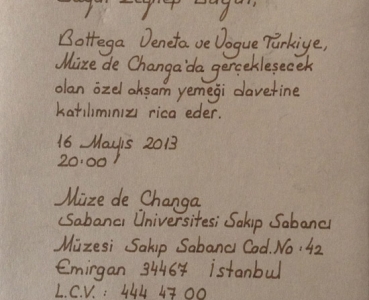 Zeynep
Bottega Veneta ve Vogue Türkiye,
Müze de Changa'da gerçekleşecek
olan özel akşam yemeği davetine
katılımınızı rica eder.
16 Mayıs 2013
20:00
Müze de Changa
Sabancı Üniversitesi Sakıp Sabancı
Müzesi Sakıp Sabancı Cad. No: 42
Emirgan 34467 İstanbul
L.C.V. : 444 47 00